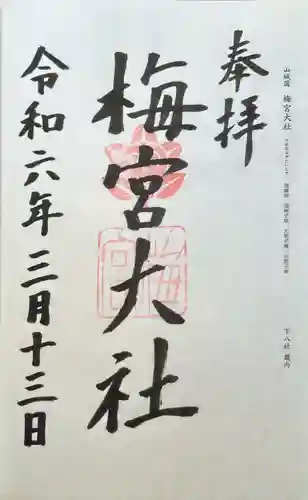 山城國 梅宮大社
下八社 畿内
奉拝
梅宮大社
梅宮
令和六年三月十三日